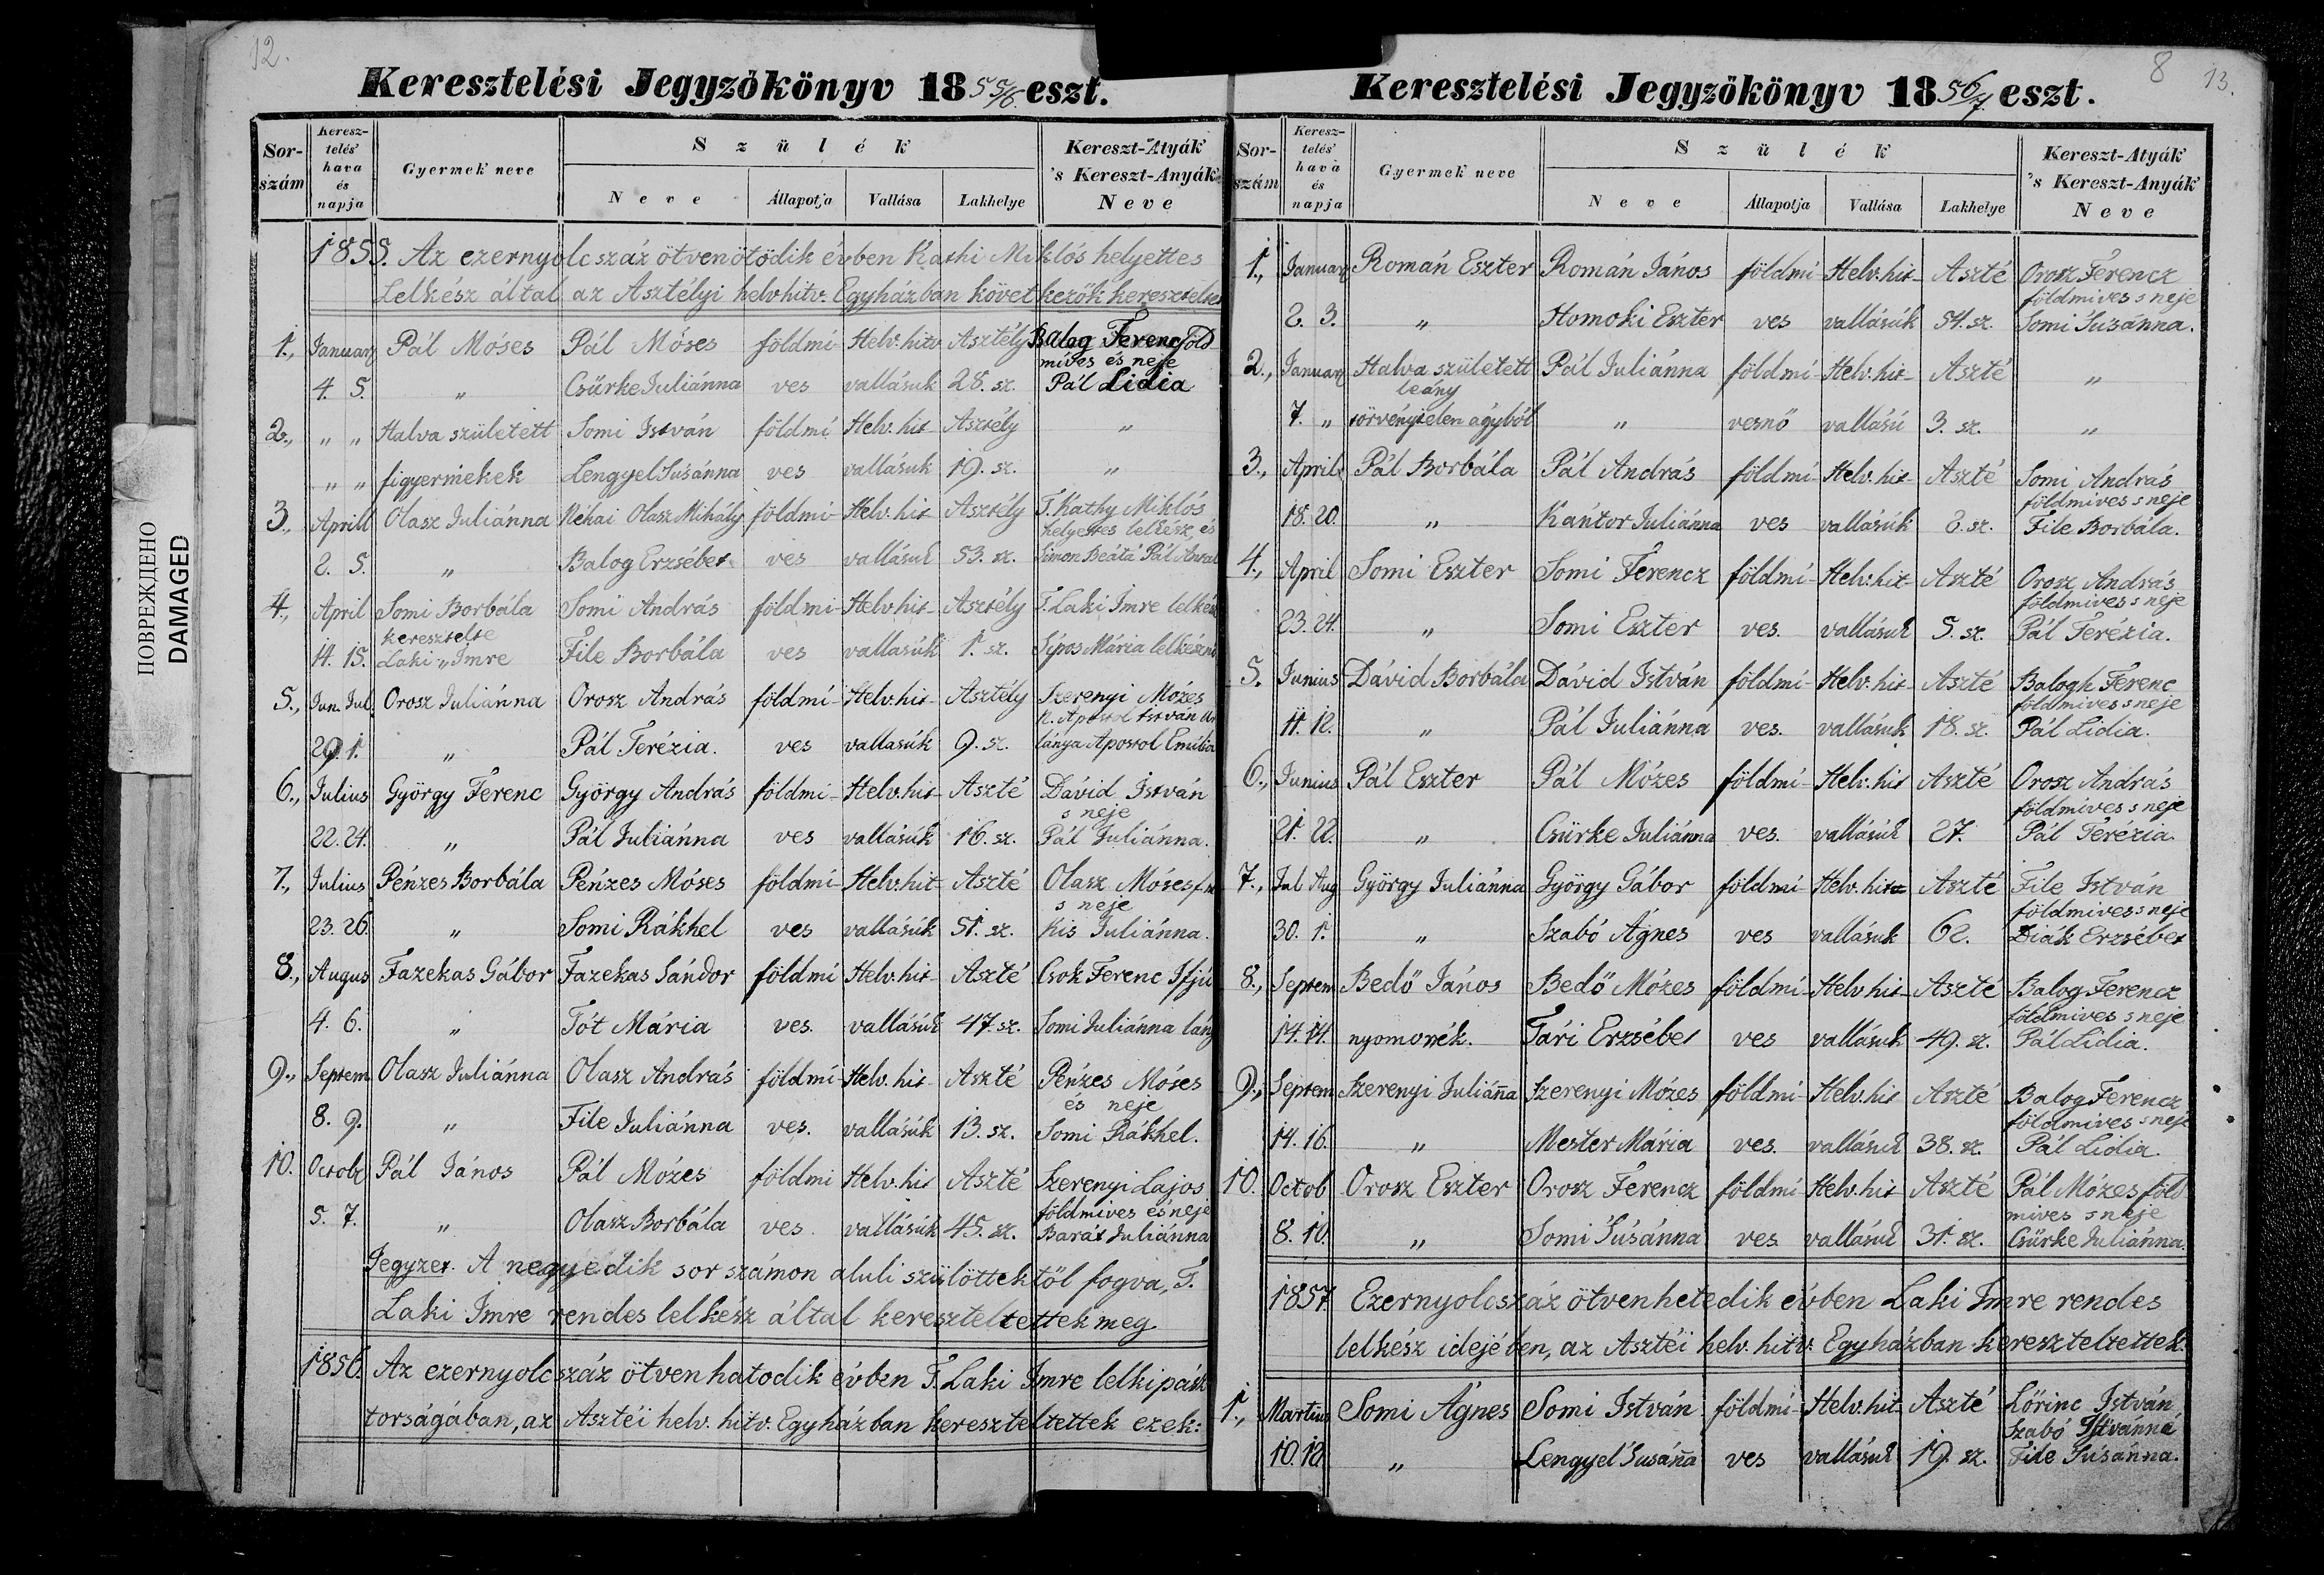 12.
Keresztelési Jegyzőkönyv 1855/6 eszt.
Sor-szám
Keresz-telés' hava és napja
Gyermek neve
Szülék
Neve
Állapotja
Vallása
Lakhelye
Kereszt-Atyák 's Kereszt-Anyák Neve
1855. Az ezernyolcszáz ötvenötödik évben Kathi Miklós helyettes
Lelkész által az Asztélyi helv hitv. Egyházban következők kereszteltet
1., Januar Pál Móses Pál Móses földmi- Helv. hitv Asztély Balog Ferenc föld
mives és neje
4. 5. " Csürke Juliánna ves vallásuk 28. sz. Pál Lidia
2., " " Halva született Somi István földmi Helv. hit- Asztély "
" " figyermekek Lengyel Susánna ves vallásuk 19. sz. "
3., Aprill Olasz Juliánna Néhai Olasz Mihály földmi- Helv. hit Asztély T. Kathy Miklós
helyettes lelkész, és
2. 5. " Balog Erzsébet ves vallásuk 53. sz. Simon Beátá Pál
4., April Somi Borbála Somi András földmi- Helv. hit- Asztély T. Laki Imre lelkész
keresztelte
14. 15. Laki " Imre File Borbála ves vallasúk 1. sz. Sipos Mária lelkészné
5., Jun. Jul. Orosz Juliánna Orosz András földmi- Helv. hit- Asztély Szerenyi Mózes
n. Apostol István
29. 1. " Pál Terézia. ves vallasúk 9. sz. lánya Apostol Emilia
6., Julius György Ferenc György András földmi- Helv. hit- Aszté Dávid István
s neje
22. 24. " Pál Juliánna ves vallásúk 16. sz. Pál Juliánna.
7., Julius Pénzes Borbála Pénzes Móses földmi- Helv. hit Aszté Olasz Móses f. m
s neje
23. 26. " Somi Rákhel ves vallásúk 51. sz. Kis Juliánna.
8., Augus Fazekas Gábor Fazekas Sándor földmi Helv. hit- Aszté Csok Ferenc Ifjú
4. 6. " Tót Mária ves. vallásúk 47. sz. Somi Juliánna lány
9., Septem Olasz Juliánna Olasz András földmi- Helv. hit- Aszté Pénzes Móses
és neje
8. 9. " File Juliánna ves. vallásúk 13. sz. Somi Rákhel.
10. Octobr Pál János Pál Mózes földmi Helv. hit Aszté Szerenyi Lajos
földmives és neje
5. 7. " Olasz Borbála ves. vallásúk 45. sz. Barát Juliánna
Jegyzet. A negyedik sor számon aluli szülöttektöl fogva, T.
Laki Imre rendes lelkész által kereszteltettek meg.
1856. Az ezernyolcszáz ötvenhatodik évben T. Laki Imre lelkipásk
torságában, az Asztéi helv. hitv. Egyházban kereszteltettek ezek:
8
13.
Keresztelési Jegyzőkönyv 1856/7 eszt.
Sor-szám
Keresz-telés' hava és napja
Gyermek neve
Szülék
Neve
Állapotja
Vallása
Lakhelye
Kereszt-Atyák 's Kereszt-Anyák Neve
1., Januar Román Eszter Román János földmi- Helv. hit- Aszté Orosz Ferencz
földmives s neje
2. 3. " Homoki Eszter ves vallásúk 54. sz. Somi Susánna.
2., Januar Halva született Pál Juliánna földmi- Helv. hit- Aszté "
leány
7. " törvénytelen ágyból " vesnő vallású 3. sz. "
3., April Pál Borbála Pál András földmi- Helv. hit- Aszté Somi András
földmives s neje
18. 20. " Kántor Juliánna ves vallásúk 2. sz. File Borbála.
4., April Somi Eszter Somi Ferencz földmi- Helv. hit- Aszté Orosz András
földmives s neje
23. 24. " Somi Eszter ves. vallásuk 5. sz. Pál Terézia.
5. Junius Dávid Borbála Dávid István földmi- Helv. hit- Aszté Balogh Ferenc
földmives s neje
11. 12. " Pál Juliánna ves. vallásuk 18. sz. Pál Lidia.
6., Junius Pál Eszter Pál Mózes földmi- Helv. hit Aszté Orosz András
földmives s neje
21. 22. " Csürke Juliánna ves. vallásúk 27. Pál Terézia.
7., Jul Aug György Juliánna György Gábor földmi- Helv. hit Aszté File István
földmives s neje
30. 1. " Szabó Ágnes ves vallásuk 62. Diák Erzsébet
8., Septem Bedő János Bedő Mózes földmi- Helv. hit- Aszté Balog Ferencz
földmives s neje
14. 14. nyomorék. Tári Erzsébet ves vallásuk 49. sz. Pál Lidia.
9., Septem Szerenyi Juliána Szerenyi Mózes földmi- Helv. hit Aszté Balog Ferencz
földmives s neje
14. 16. " Mester Mária ves. vallásuk 38. sz. Pál Lidia.
10. Octob Orosz Eszter Orosz Ferencz földmi- Helv. hit Aszté Pál Mózes föld
mives s neje
8. 10. " Somi Súsánna ves vallásuk 31. sz. Csürke Juliánna.
1857. Ezernyolcszáz ötvenhetedik évben Laki Imre rendes
lelkész idejében, az Asztéi helv. hitv. Egyházban kereszteltettek.
1., Martius Somi Ágnes Somi István földmi- Helv. hit Aszté Lőrinc István
Szabó Istvánná
10. 12. " Lengyel Susána ves vallásuk 19. sz. File Súsánna.
ПОВРЕЖДЕНО
DAMAGED